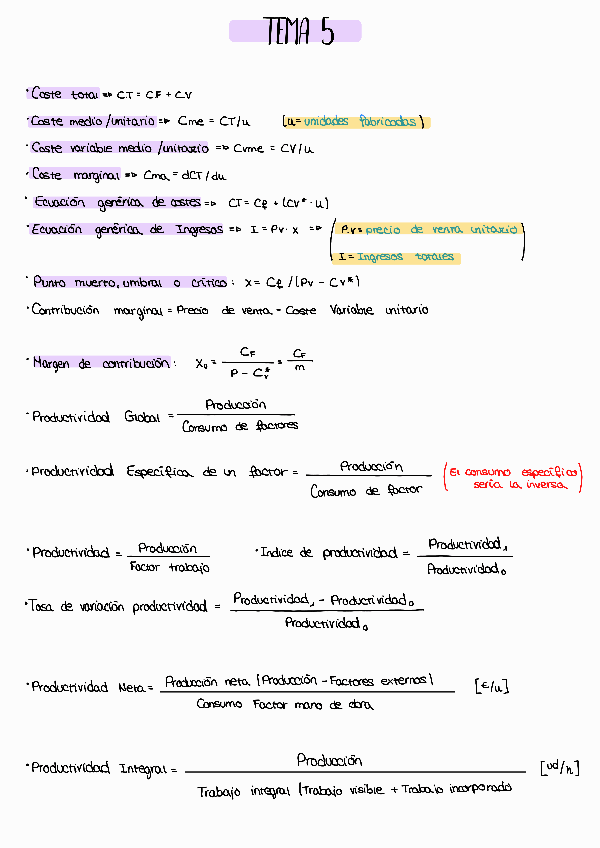 TEMA 5
· Coste total => CT = CF + CV
· Coste medio/unitario => Cme = CT/u [u = unidades fabricadas)
· Coste variable medio/unitario => Cvme = CV/u
· Coste marginal => Cma = dCT/du
· Ecuación genérica de costes => CT = Cf + (CV* · u)
· Ecuación genérica de Ingresos => I = Pv · x => (P.v = precio de venta unitario
I = Ingresos totales)
· Punto muerto, umbral o crítico: x = Cf /(Pv - CV*)
· Contribución marginal = Precio de venta - Coste Variable unitario
· Margen de contribución: X₀ = CF / P - Cv* = CF / m
· Productividad Global = Producción / Consumo de factores
· Productividad Específica de un factor = Producción / Consumo de factor (El consumo específico sería la inversa)
· Productividad = Producción / Factor trabajo · Indice de productividad = Productividad₁ / Productividad₀
· Tasa de variación productividad = Productividad₁ - Productividad₀ / Productividad₀
· Productividad Neta = Producción neta (Producción - Factores externos) / Consumo Factor mano de obra [€/u]
· Productividad Integral = Producción / Trabajo integral (Trabajo visible + Trabajo incorporado [ud/h]